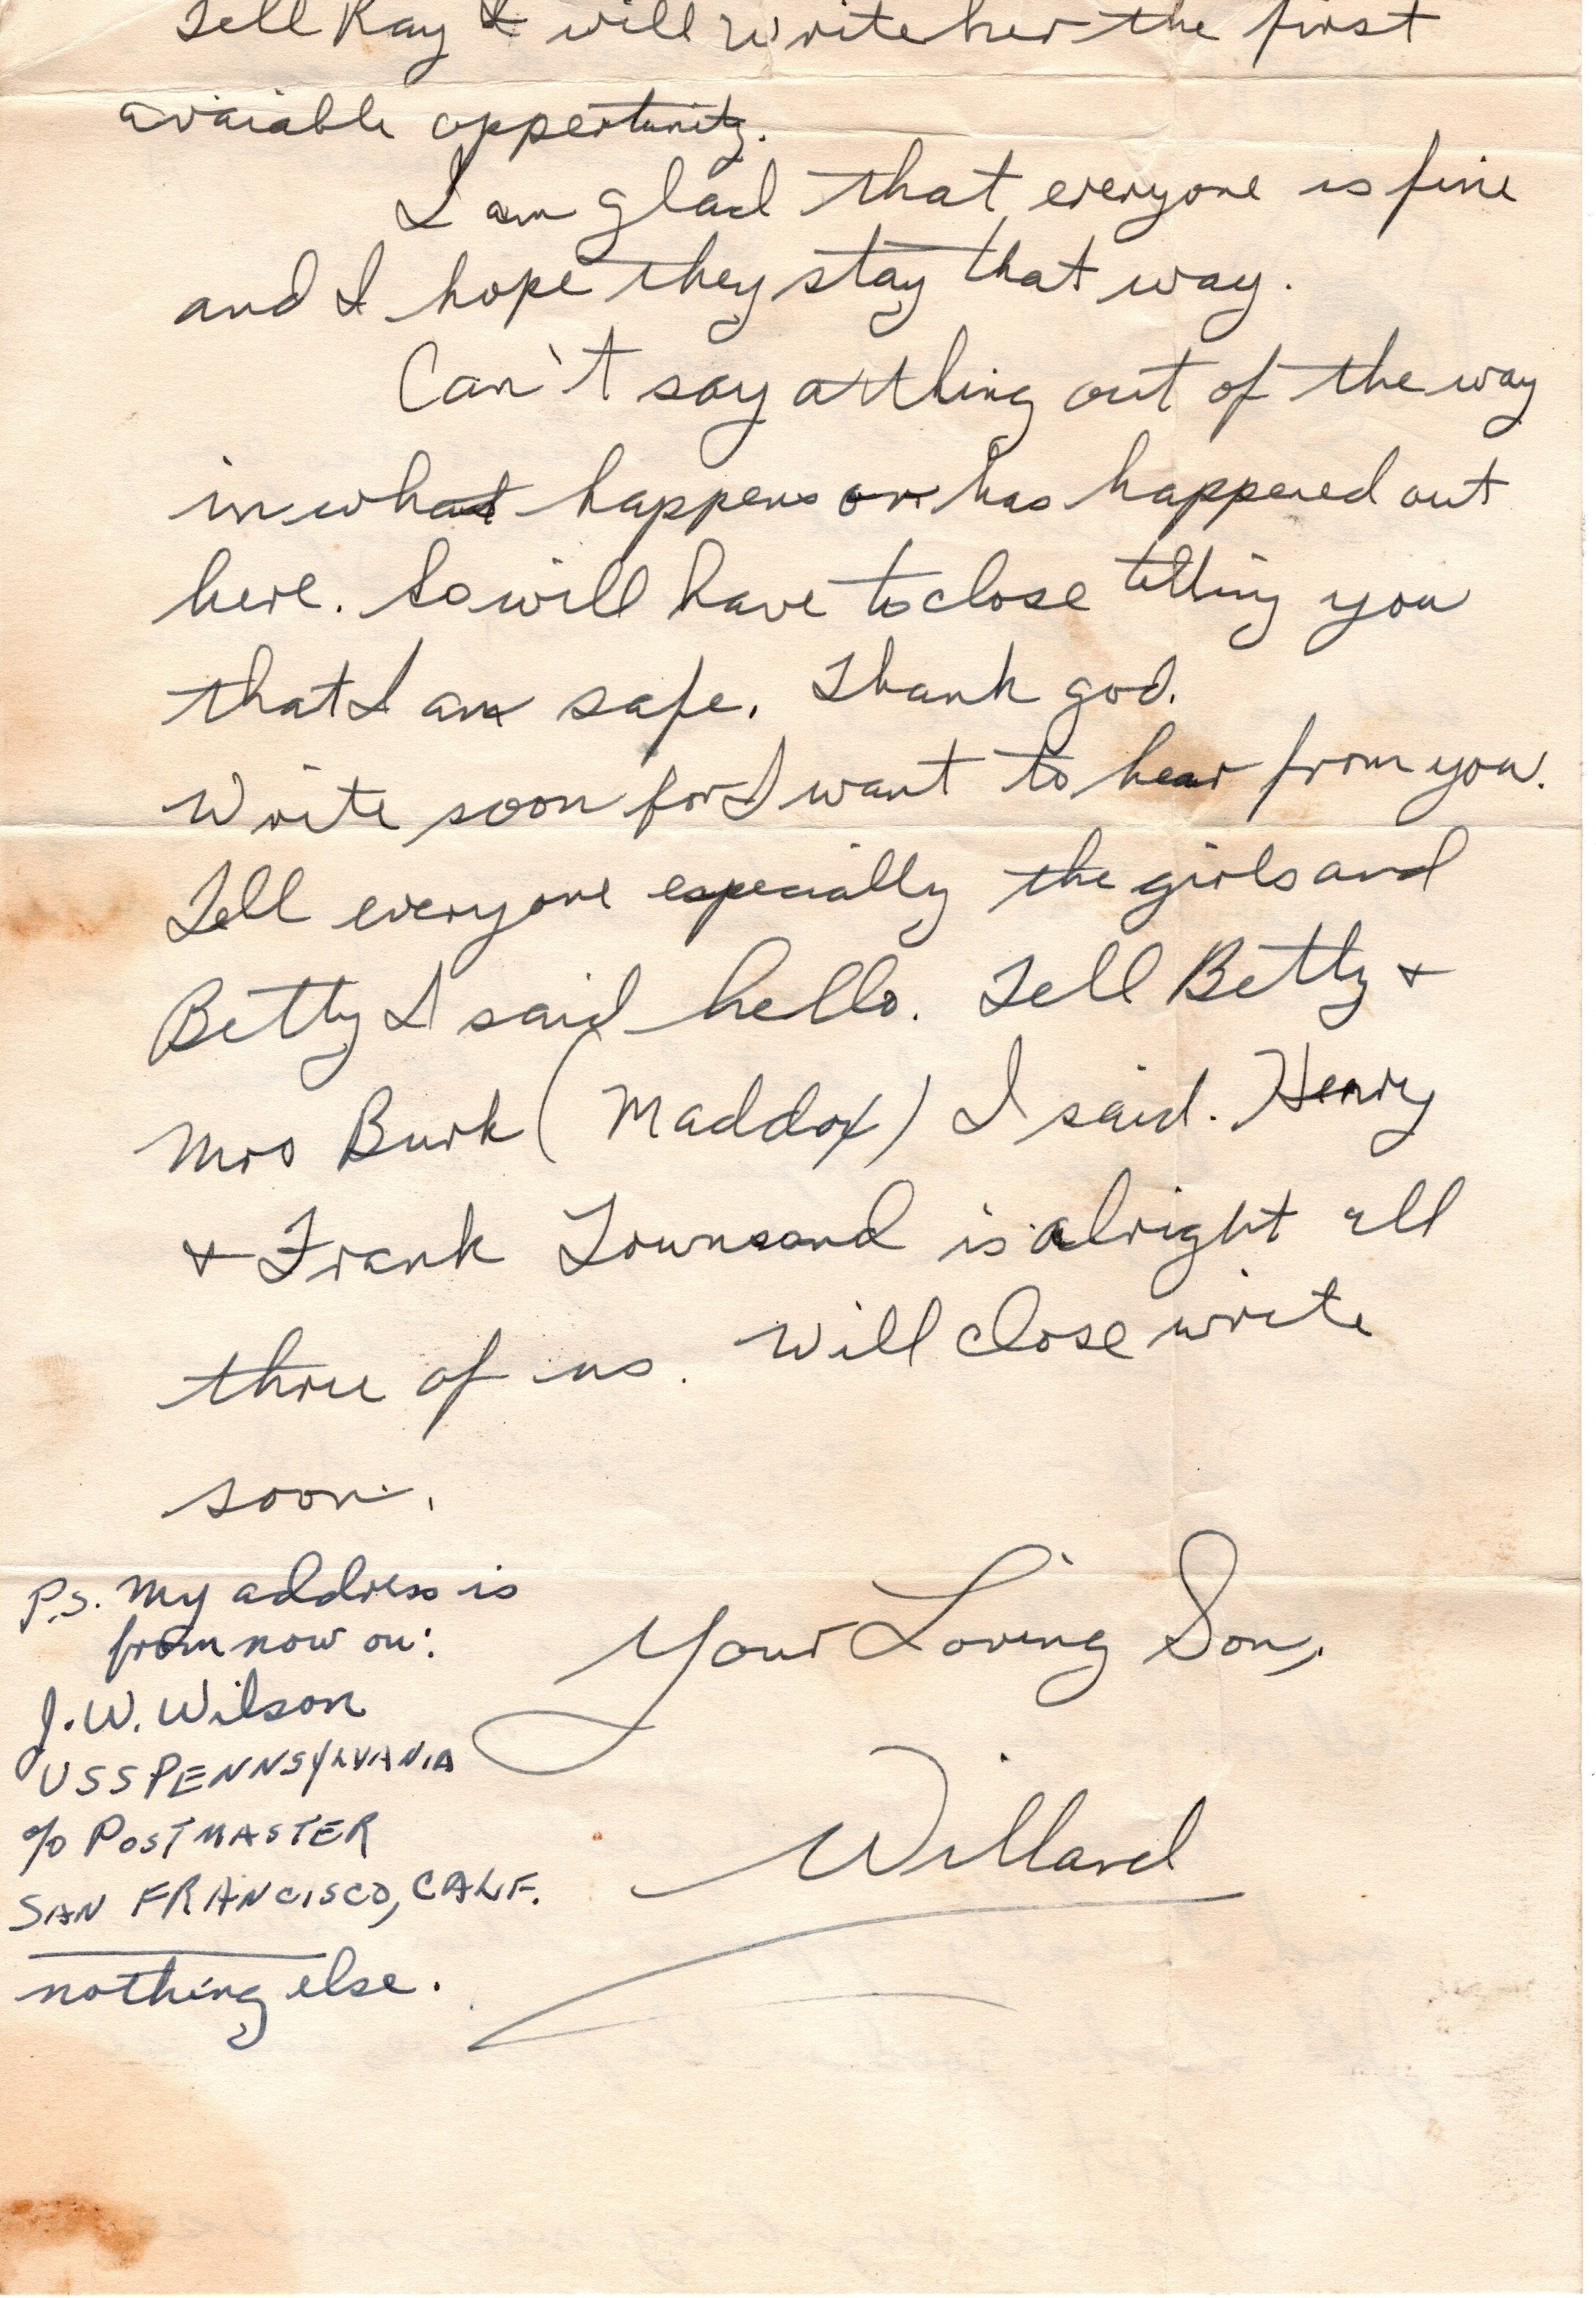 Tell Kay I will write her the first
avaiable oppertunity.
I am glad that everyone is fine
and I hope they stay that way.
Can't say a thing out of the way
in what happens or has happened out
here. So will have to close telling you
that I am safe. Thank god.
Write soon for I want to hear from you.
Tell everyone especially the girls and
Betty I said hello. Tell Betty +
Mrs Burk (Maddox) I said. Henry
+ Frank Townsend is alright all
three of us. Will close write
soon.
Your Loving Son,
Willard
P.S. My address is
from now on:
J. W. Wilson
USS PENNSYLVANIA
c/o POSTMASTER
SAN FRANCISCO, CALIF.
nothing else.